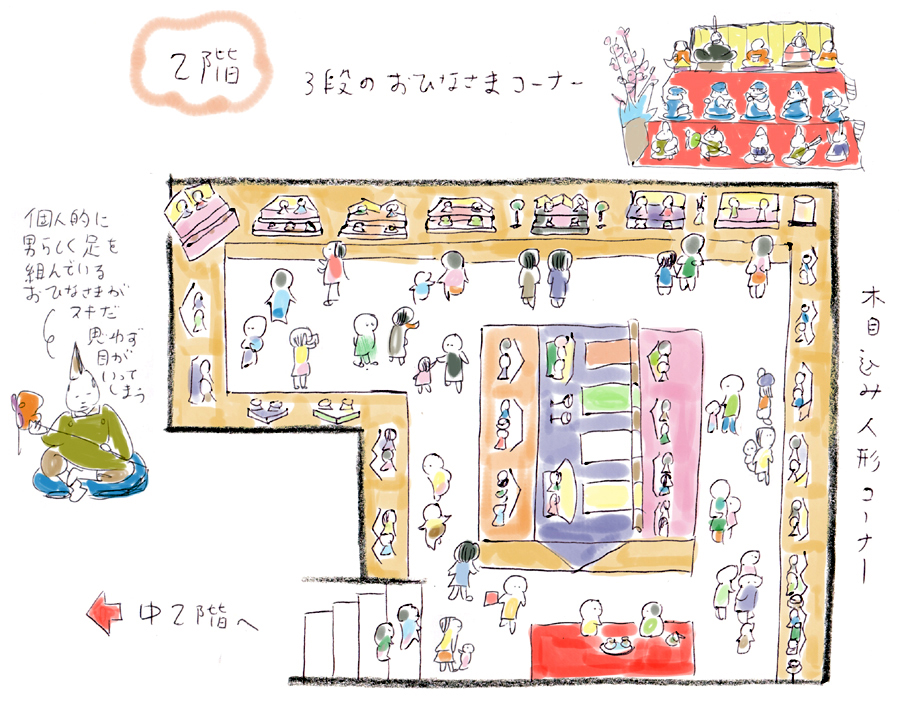 2階
3段のおひなさまコーナー
個人的に
男らしく足を
組んでいる
おひなさまが
スキだ
思わず
目が
いって
しまう
木目込み人形コーナー
中2階へ